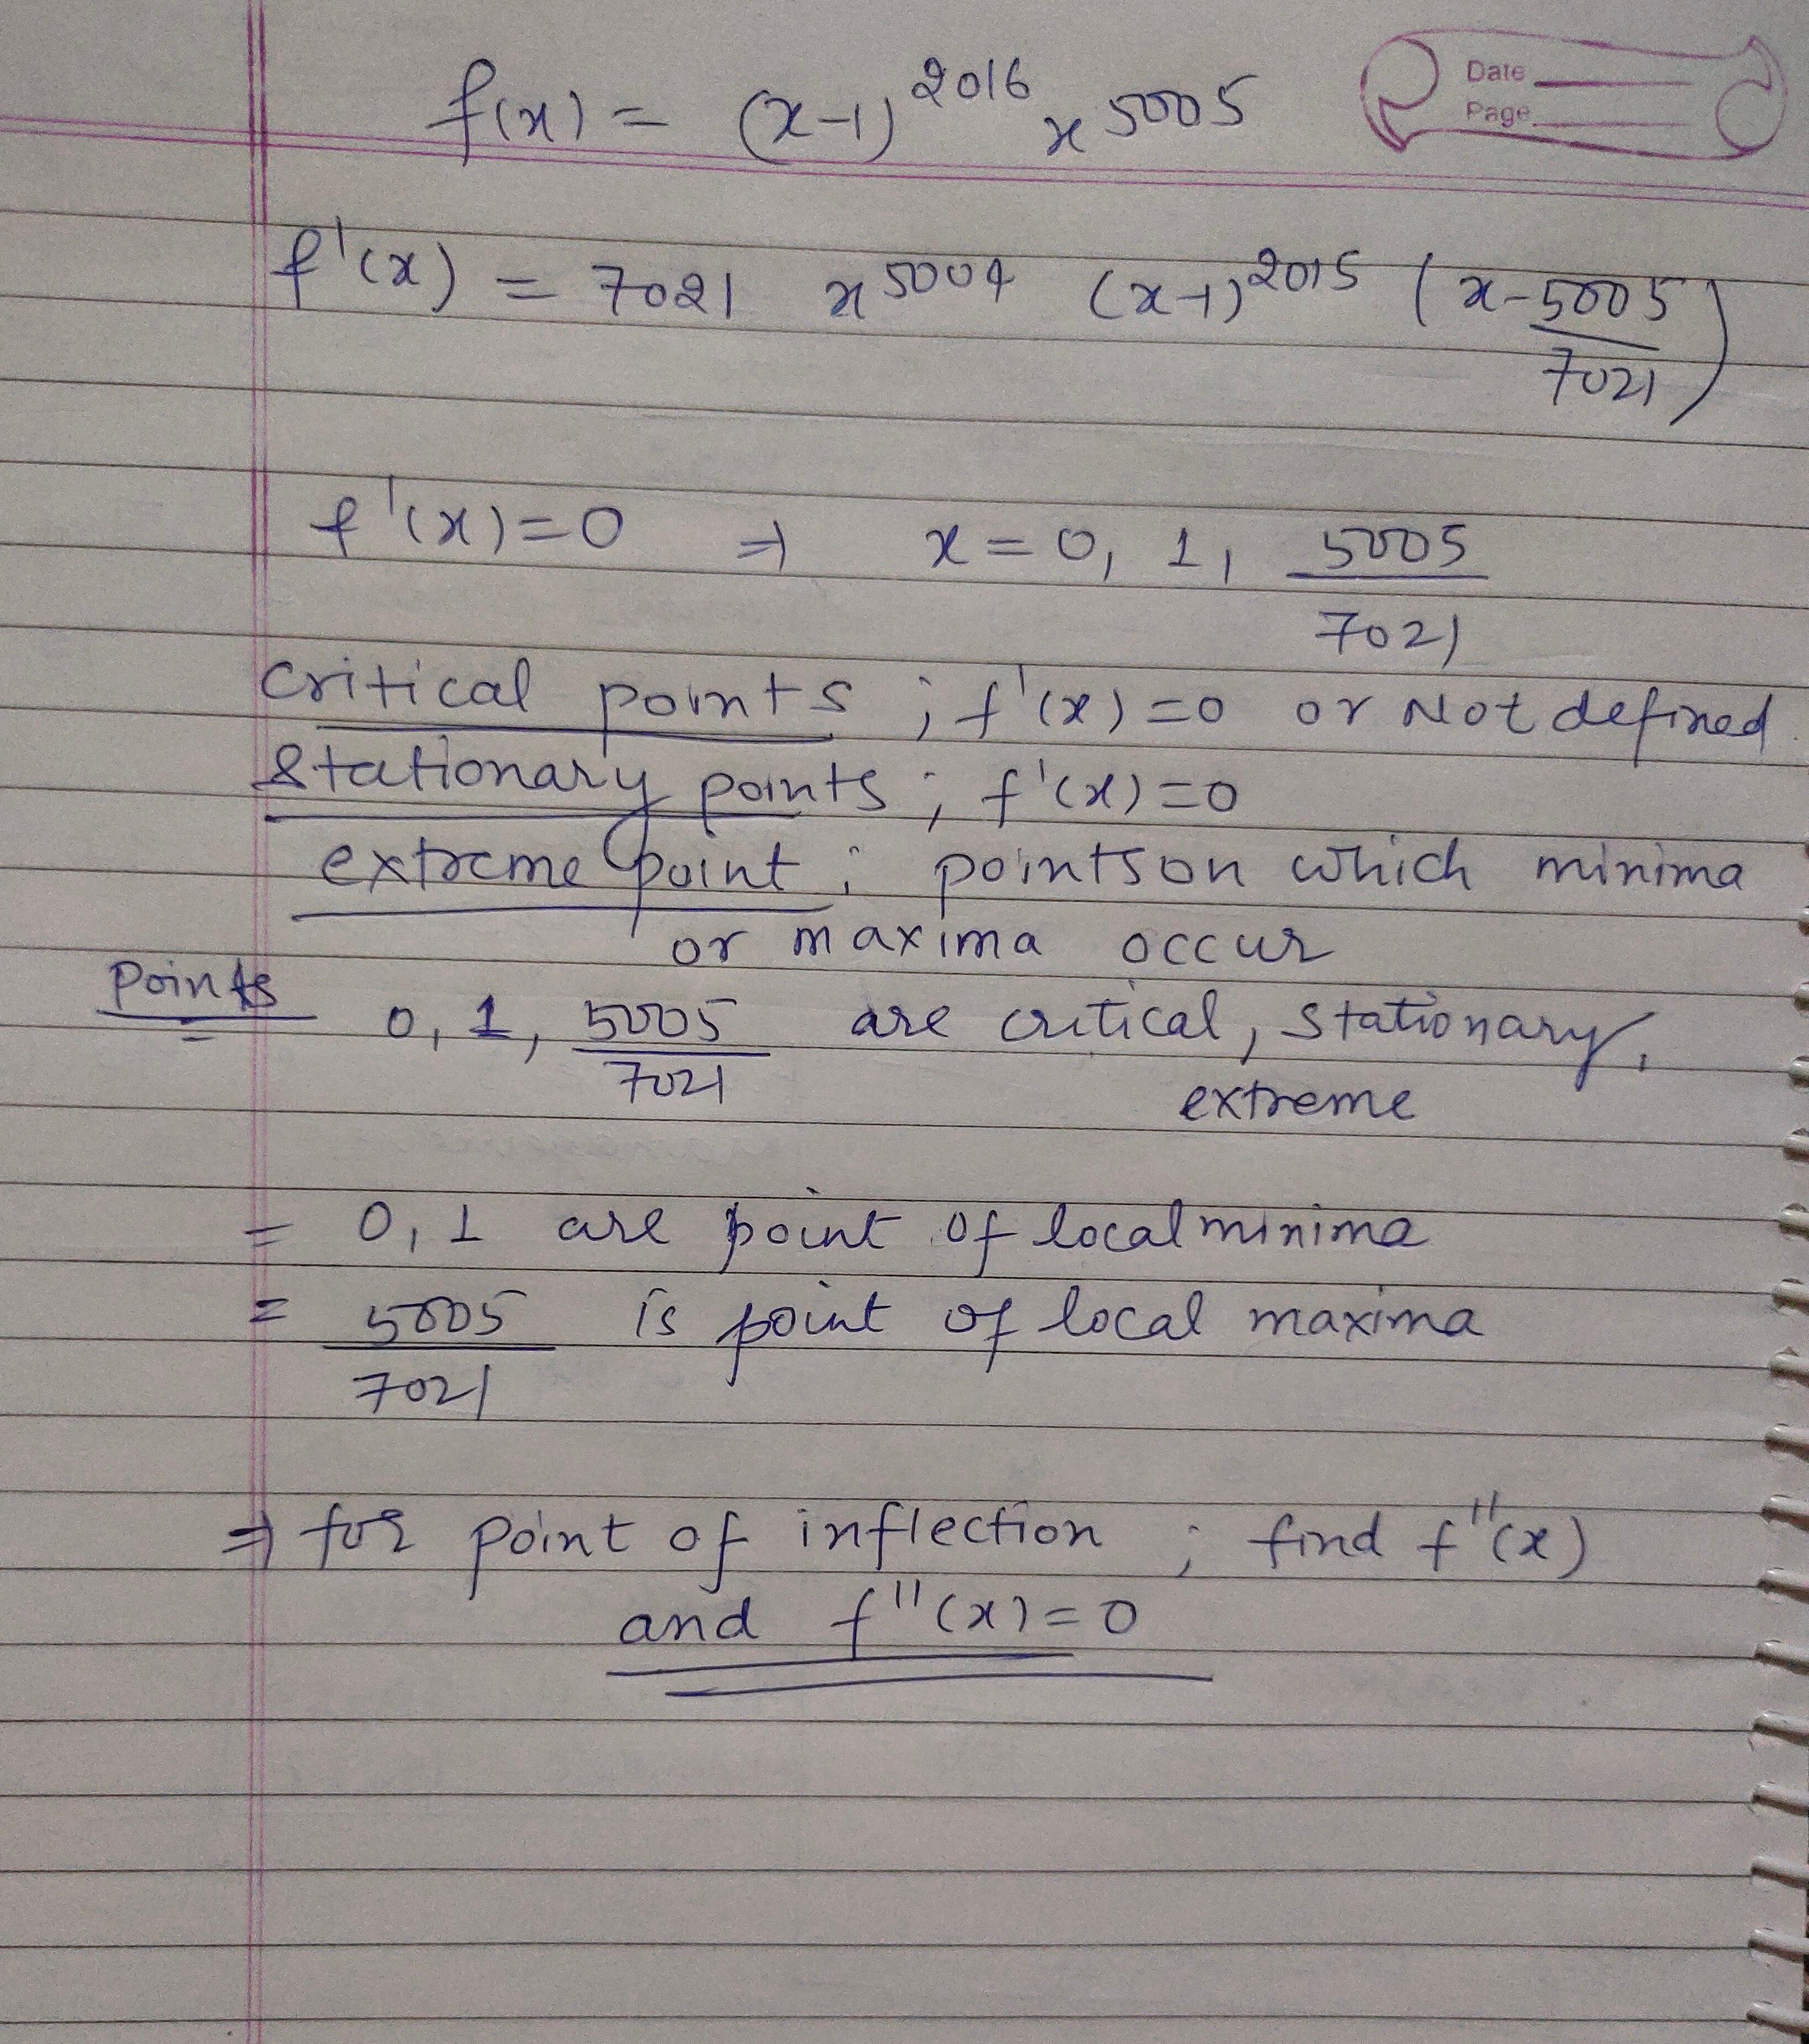 Date
Page
f(x) = (x-1)^2016 x^5005
f'(x) = 7021 x^5004 (x-1)^2015 (x - 5005/7021)
f'(x)=0 ⇒ x = 0, 1, 5005/7021
critical points ; f'(x)=0 or Not defined.
Stationary points ; f'(x)=0
extreme point ; points on which minima
or maxima occur
Points
0, 1, 5005/7021 are critical, stationary,
extreme
= 0, 1 are point of local minima
= 5005/7021 is point of local maxima
⇒ for point of inflection ; find f''(x)
and f''(x)=0